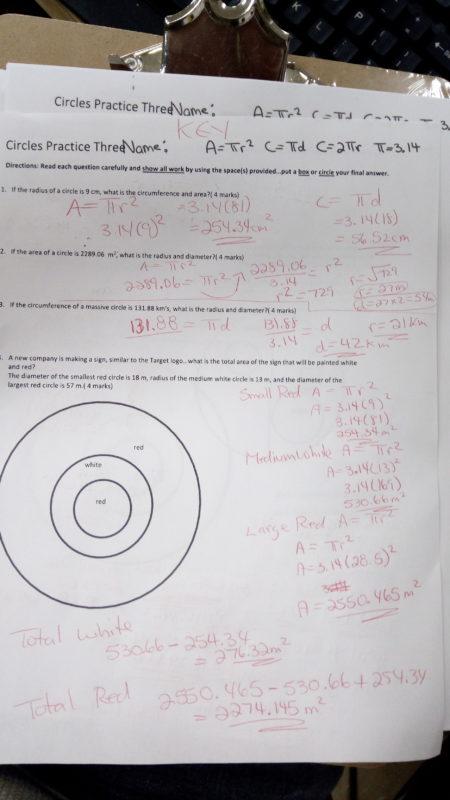 Circles Practice Three Name: A=πr² C=πd
KEY
Circles Practice Three Name: A=πr² C=πd C=2πr π=3.14
Directions: Read each question carefully and show all work by using the space(s) provided...put a box or circle your final answer.
1. If the radius of a circle is 9 cm, what is the circumference and area?( 4 marks)
A=πr² =3.14(81) C= πd
3.14(9)² =254.34cm² =3.14(18)
= 56.52cm
2. If the area of a circle is 2289.06 m², what is the radius and diameter?( 4 marks)
A = πr²
2289.06 = πr² 2289.06/3.14 = r² r=√729
r²=729 r=27m
d=27×2=54m
3. If the circumference of a massive circle is 131.88 km's, what is the radius and diameter?( 4 marks)
131.88 = πd 131.88/3.14 = d r=21km
d=42km
A new company is making a sign, similar to the Target logo.. what is the total area of the sign that will be painted white
and red?
The diameter of the smallest red circle is 18 m, radius of the medium white circle is 13 m, and the diameter of the
largest red circle is 57 m.( 4 marks)
red
white
red
Small Red A = πr²
A = 3.14(9)²
3.14(81)
254.34m²
Medium white A = πr²
A=3.14(13)²
3.14(169)
530.66m²
Large Red A = πr²
A = πr²
A=3.14(28.5)²
A=2550.465m²
Total white
530.66-254.34
= 276.32m²
Total Red 2550.465-530.66+254.34
= 2274.145m²